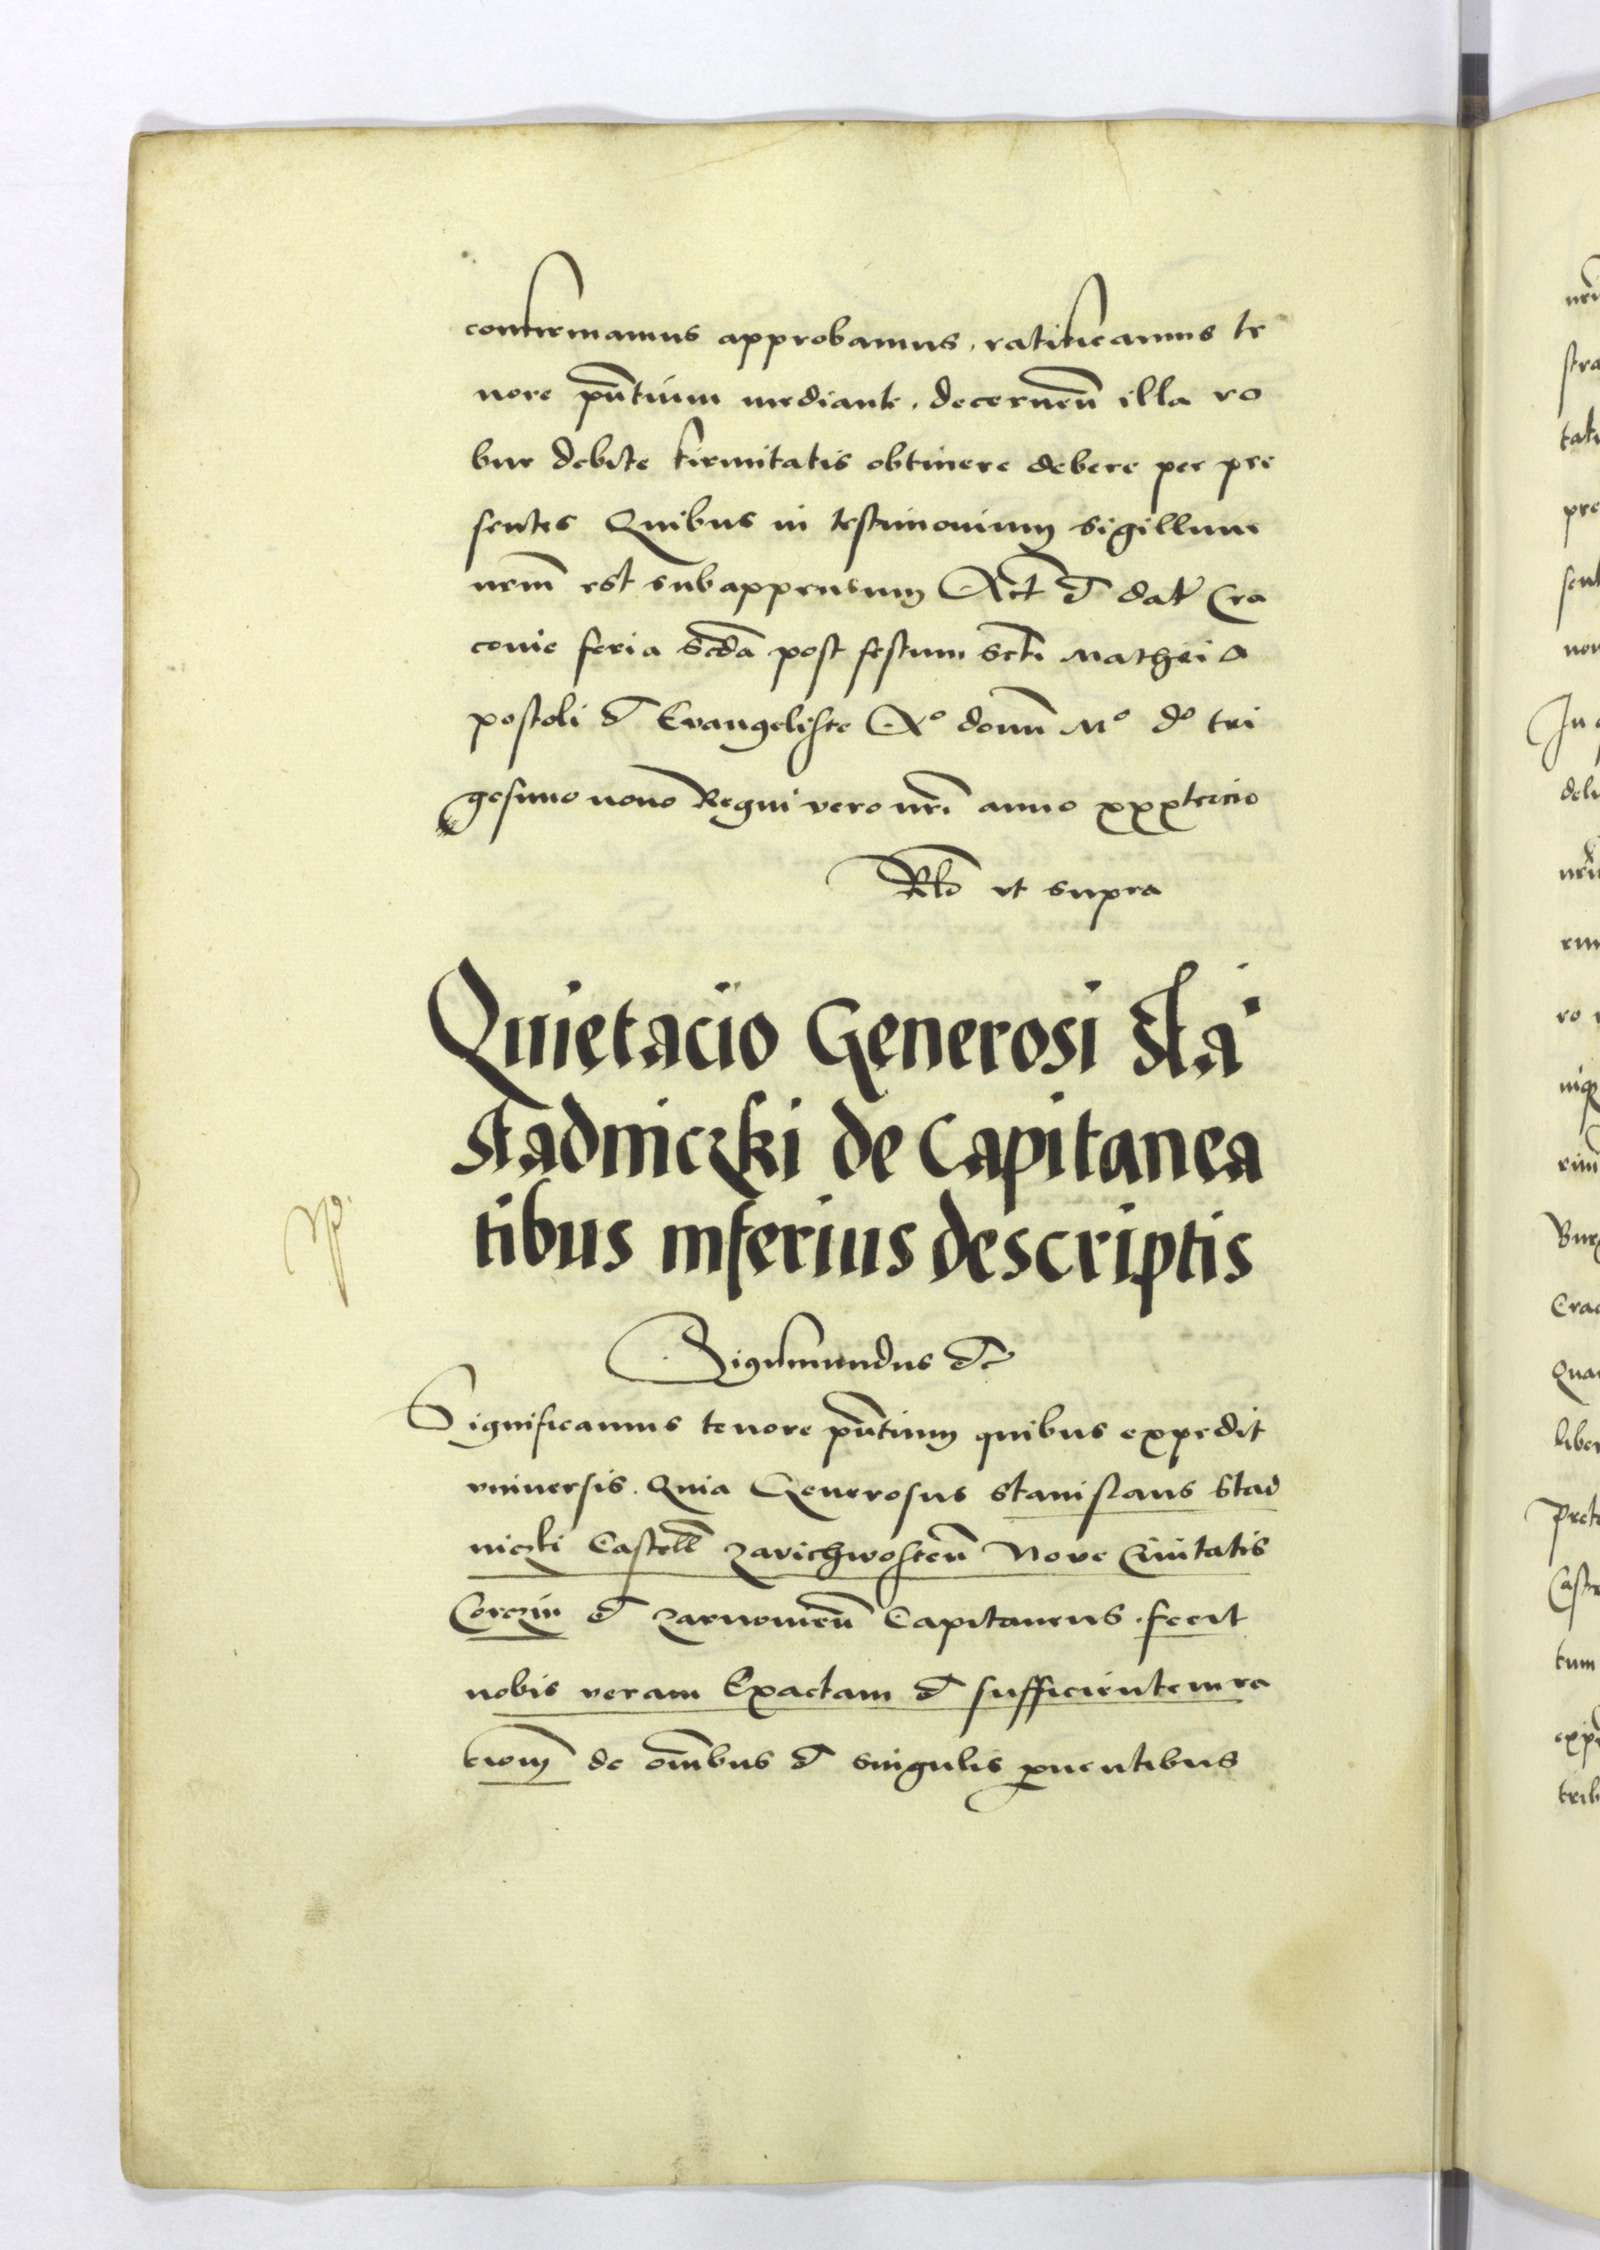 confirmamus approbamus, ratificamus te
nore pñtium mediante. decernen̄ illa ro
bur debite firmitatis obtinere debere per pre
sentes Quibus in testimonium sigillum
nrm̄ est subappensum Act̄ et dat̄ Cra
covie feria scd̄a post festum sct̄i Mathei A
postoli et Evangeliste Aº domn̄ Mº dº tri
gesimo nono Regni vero nrī anno xxxtercio
Rlō vt supra
Quietacio Generosi Sta
Stadniczki de Capitanea
tibus inferius descriptis
Sigismundus etc
Significamus tenore pñtium quibus expedit
vniversis. Quia Generosus Stanislaus Stad
niczki Castell̄ Zavichwosten̄ Nove Civitatis
Corczin et Zarnowien̄ Capitaneus. fecit
nobis veram Exactam et sufficientem ra
tionem̄ de om̄ibus et singulis proventibus